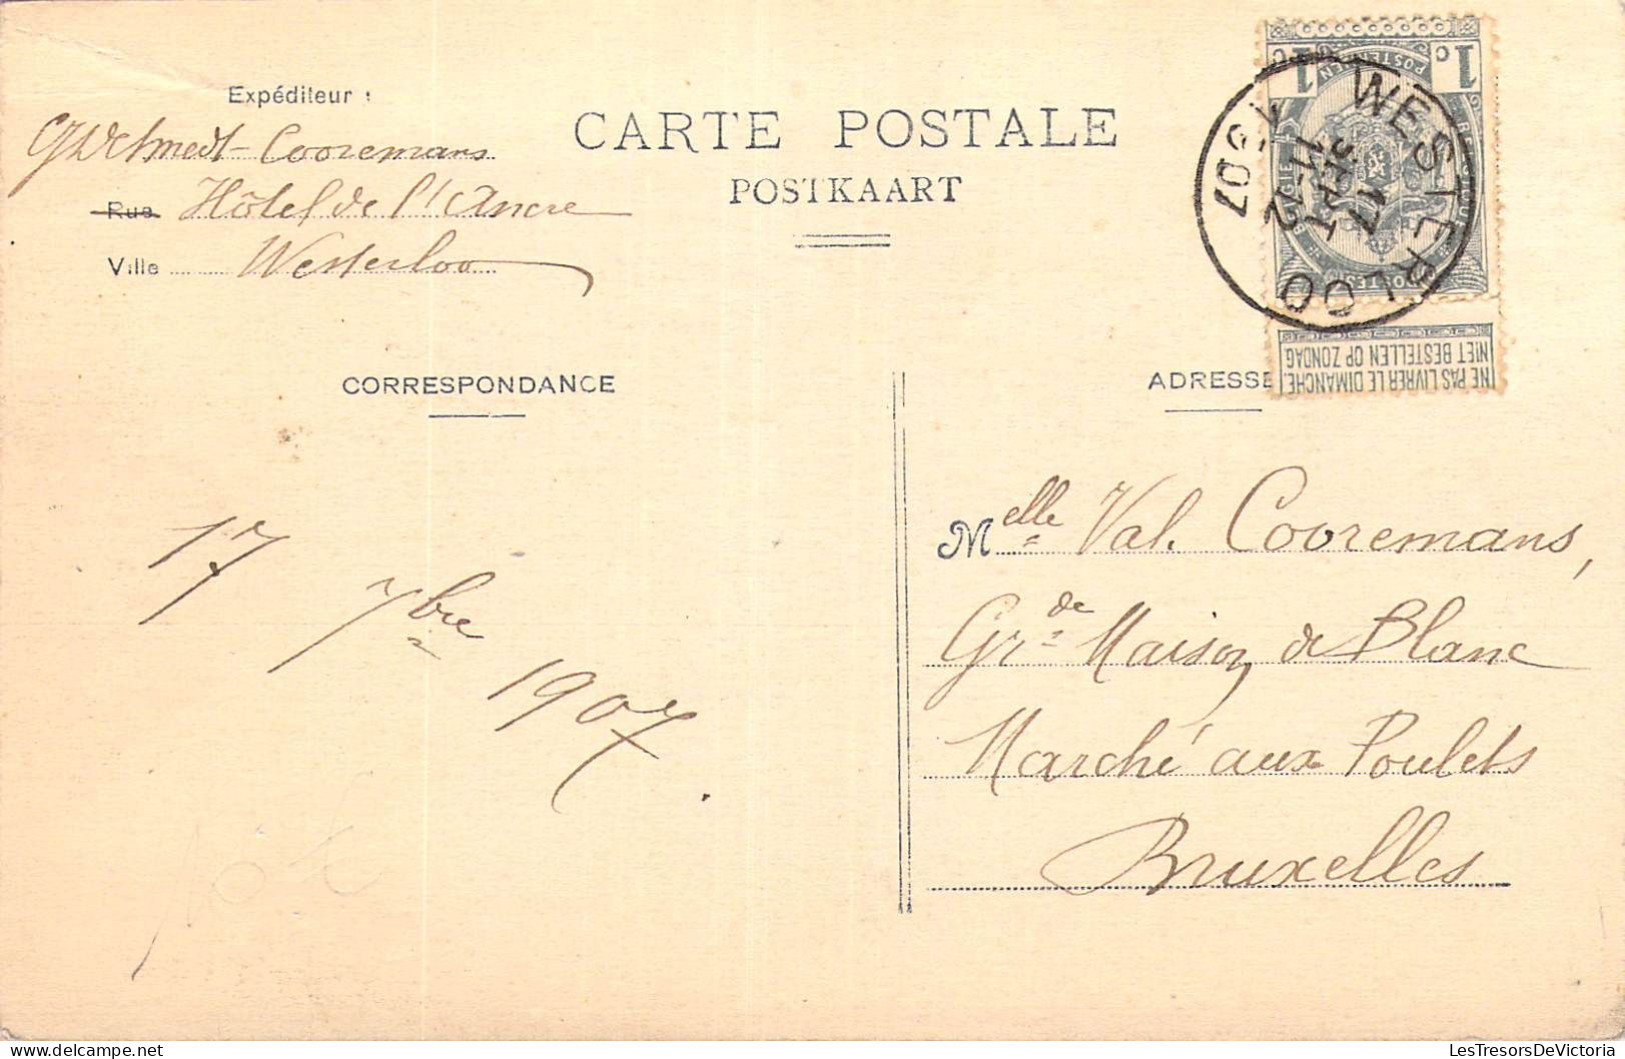 Expéditeur :
Desmedt-Cooremans
Rue Hôtel de l'Ancre
Ville Westerloo
CARTE POSTALE
POSTKAART
CORRESPONDANCE
ADRESSE
WESTERLOO
17
SEPT
11-12
1907
1c 1c
POSTERIJEN
BELGIE BELGIQUE
POSTES
NIET BESTELLEN OP ZONDAG
NE PAS LIVRER LE DIMANCHE
17 7bre 1907.
Melle Val. Cooremans,
Grde Maison de Blanc
Marché aux Poulets
Bruxelles
LesTresorsDeVictoria